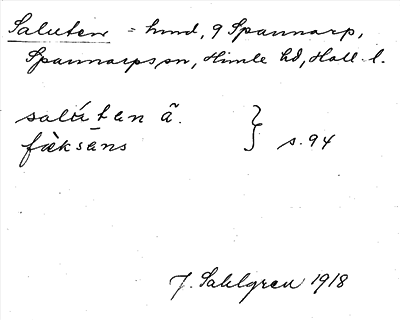 Saluten = hund, 9 Spannarp,
Spannarps sn, Himle hd, Hall. l.
salúten ã.
fœ̀ksēns } s. 94
J. Sahlgren 1918